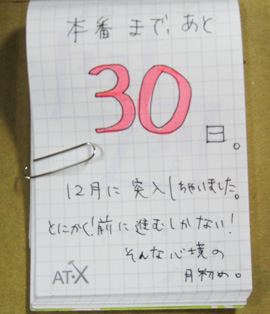 本番まで、あと
30
日。
12月に突入しちゃいました。
とにかく!前に進むしかない!
そんな心境の
月初め。
AT-X